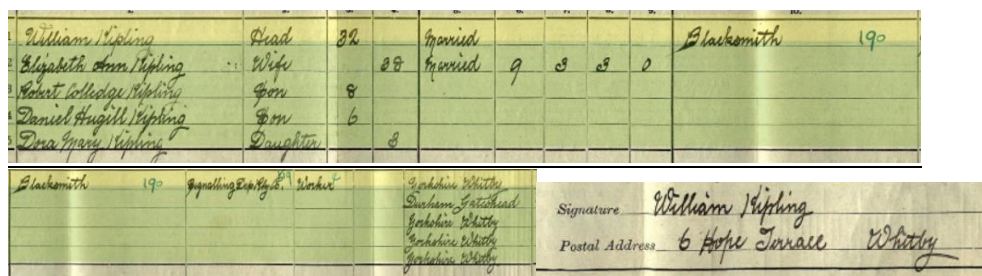 1 William Kipling Head 32 Married Blacksmith 190
2 Elizabeth Ann Kipling Wife 38 Married 9 3 3 0
3 Robert Colledge Kipling Son 8
4 Daniel Hugill Kipling Son 6
5 Dora Mary Kipling Daughter 3
Blacksmith 190 Signalling Worker Yorkshire Whitby
Durham Gateshead
Yorkshire Whitby
Yorkshire Whitby
Yorkshire Whitby
Signature William Kipling
Postal Address 6 Hope Terrace Whitby